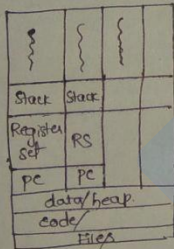 Stack Stack
Register RS
Set
PC PC
data/heap.
code/
Files